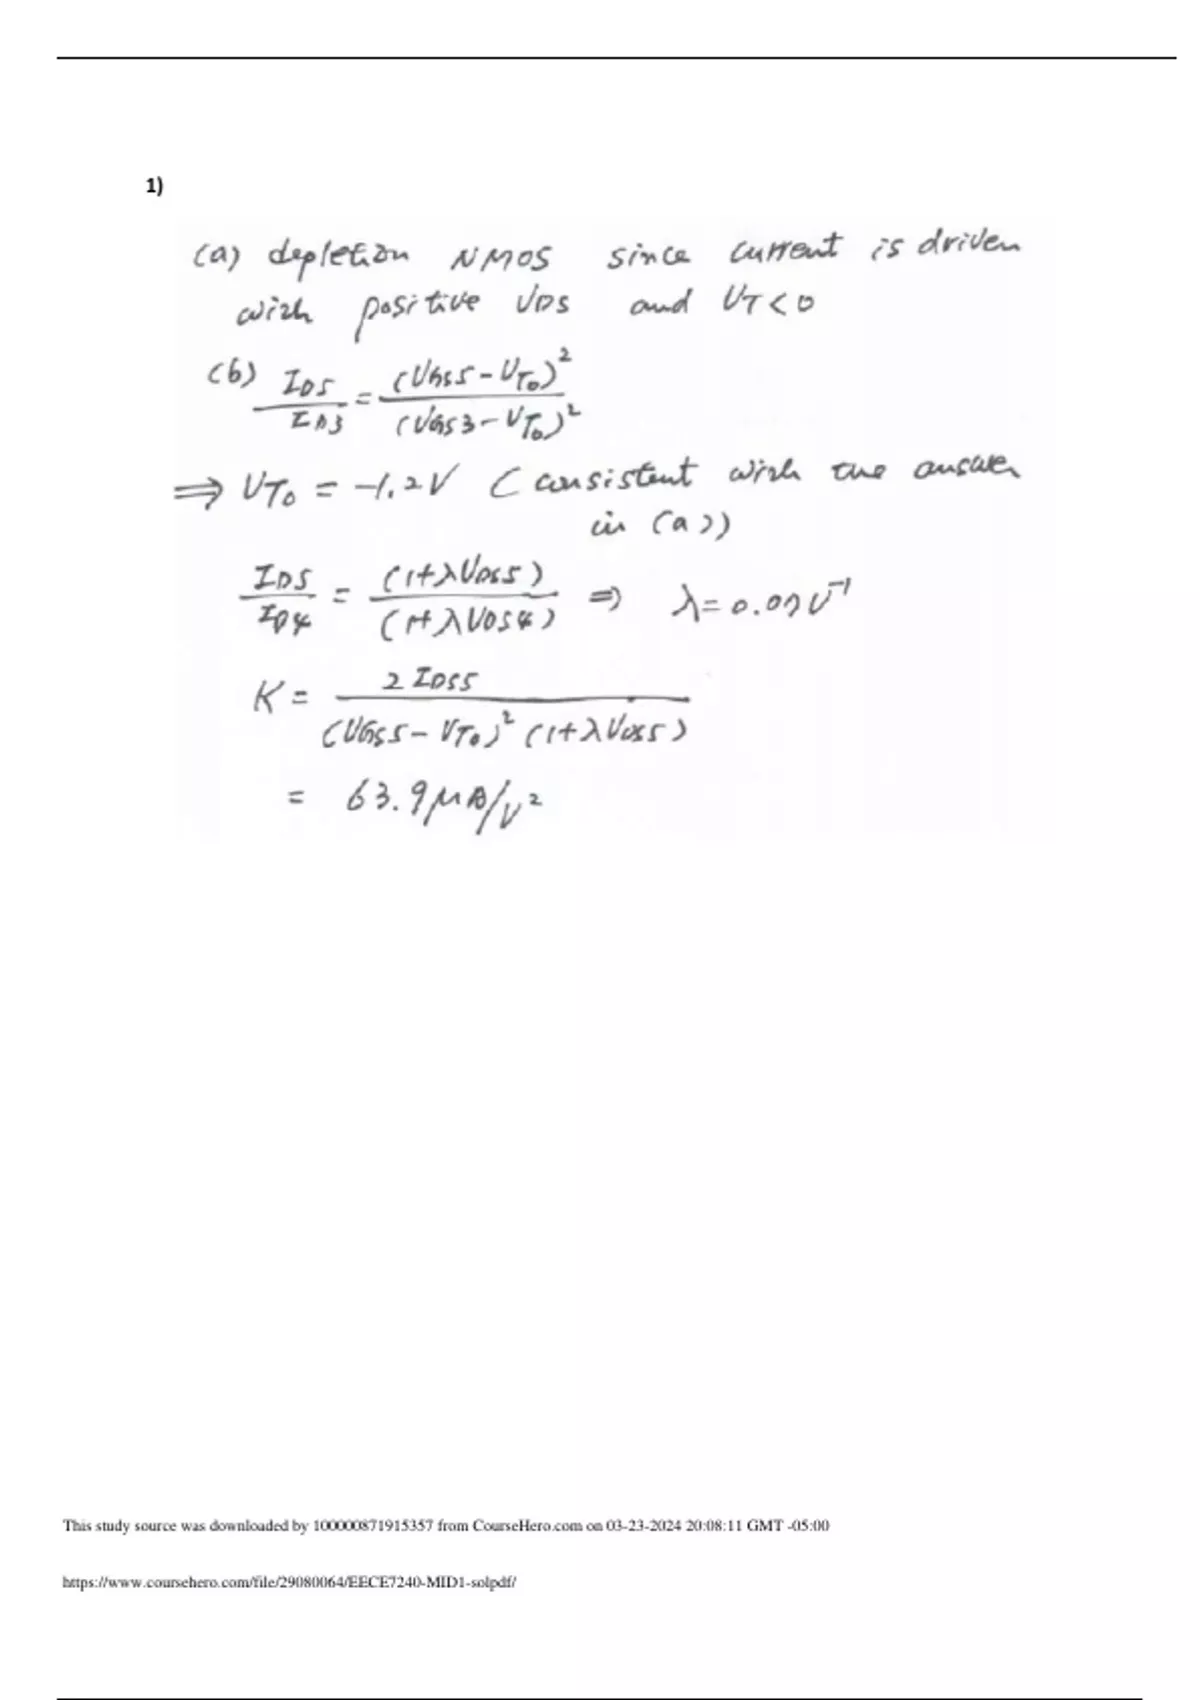 1)
(a) depletion NMOS since current is driven
with positive VDS and VT<0
(b) ID5/ID3 = (VGS5-VT0)²/(VGS3-VT0)²
⇒ VT0 = -1.2V (consistent with the answer
in (a))
ID5/ID4 = (1+λVDS5)/(1+λVDS4) ⇒ λ=0.07V⁻¹
K = 2IDS5/(VGS5-VT0)²(1+λVDS5)
= 63.9μA/V²
This study source was downloaded by 100000871915357 from CourseHero.com on 03-23-2024 20:08:11 GMT -05:00
https://www.coursehero.com/file/29080064/EECE7240-MID1-solpdf/